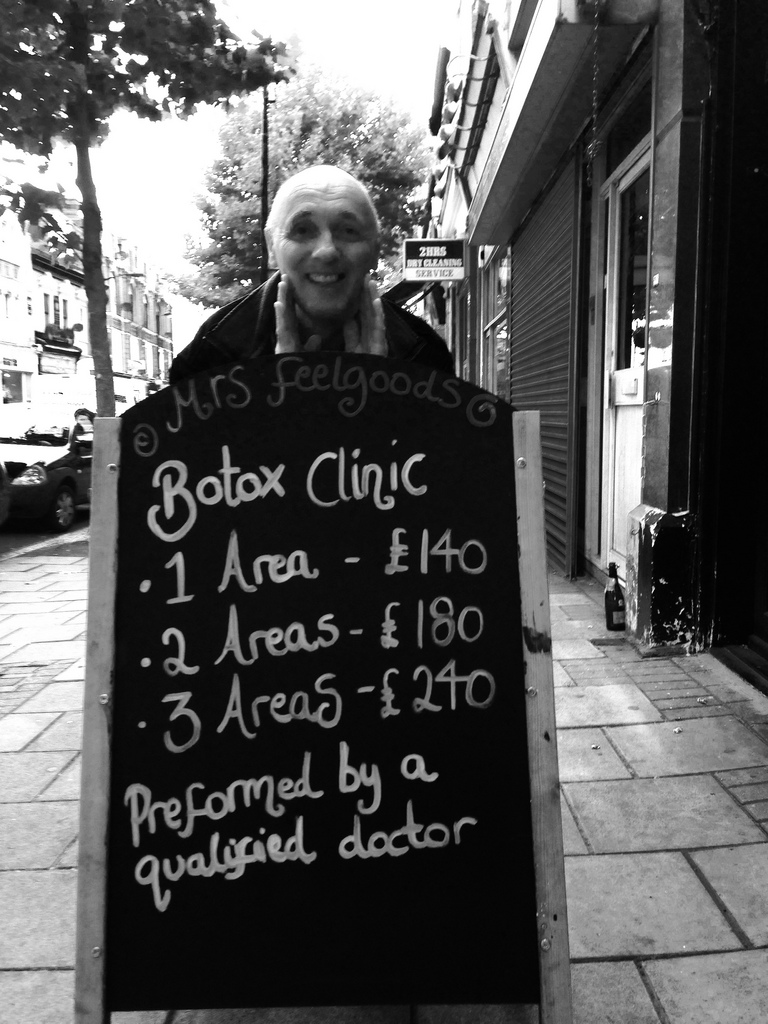 2HRS
DRY CLEANING
SERVICE
Mrs Feelgoods
Botox Clinic
· 1 Area - £140
· 2 Areas - £180
· 3 Areas - £240
Preformed by a
qualified doctor